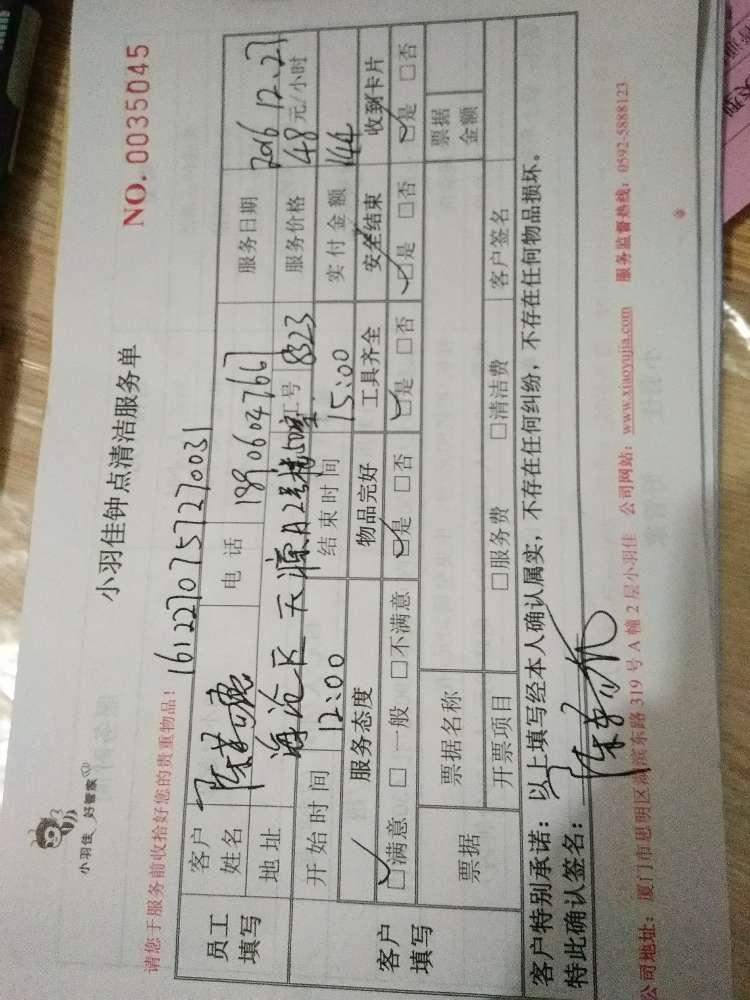 小羽佳 好管家
小羽佳钟点清洁服务单
NO. 0035045
请您于服务前收拾好您的贵重物品！
1612270757270031
员工填写
客户姓名
电话
18906047667
服务日期 2016 12.27
地址 海沧区天源A2号楼
工号 8323
服务价格 48元/小时
客户填写
开始时间 12:00 结束时间 15:00 实付金额 144
服务态度 物品完好 工具齐全 安全结束 收到卡片
□满意 □一般 □不满意 □是 □否 □是 □否 □是 □否 □是 □否
票据 票据名称 票据金额
开票项目 □服务费 □清洁费 客户签名
客户特别承诺：以上填写经本人确认属实，不存在任何纠纷，不存在任何物品损坏。
特此确认签名：
公司地址：厦门市思明区湖滨东路 319 号 A 幢 2 层小羽佳 公司网站：www.xiaoyujia.com 服务监督热线：0592-5888123